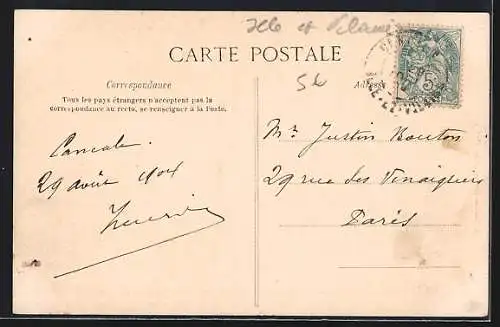 Ille et Vilaine
CARTE POSTALE
56
Correspondance
Adresse
Tous les pays étrangers n'acceptent pas la
correspondance au recto, se renseigner à la Poste.
Cancale.
29 août 1904
Mr. Justin Bouton
29 rue des Vinaigriers
Paris